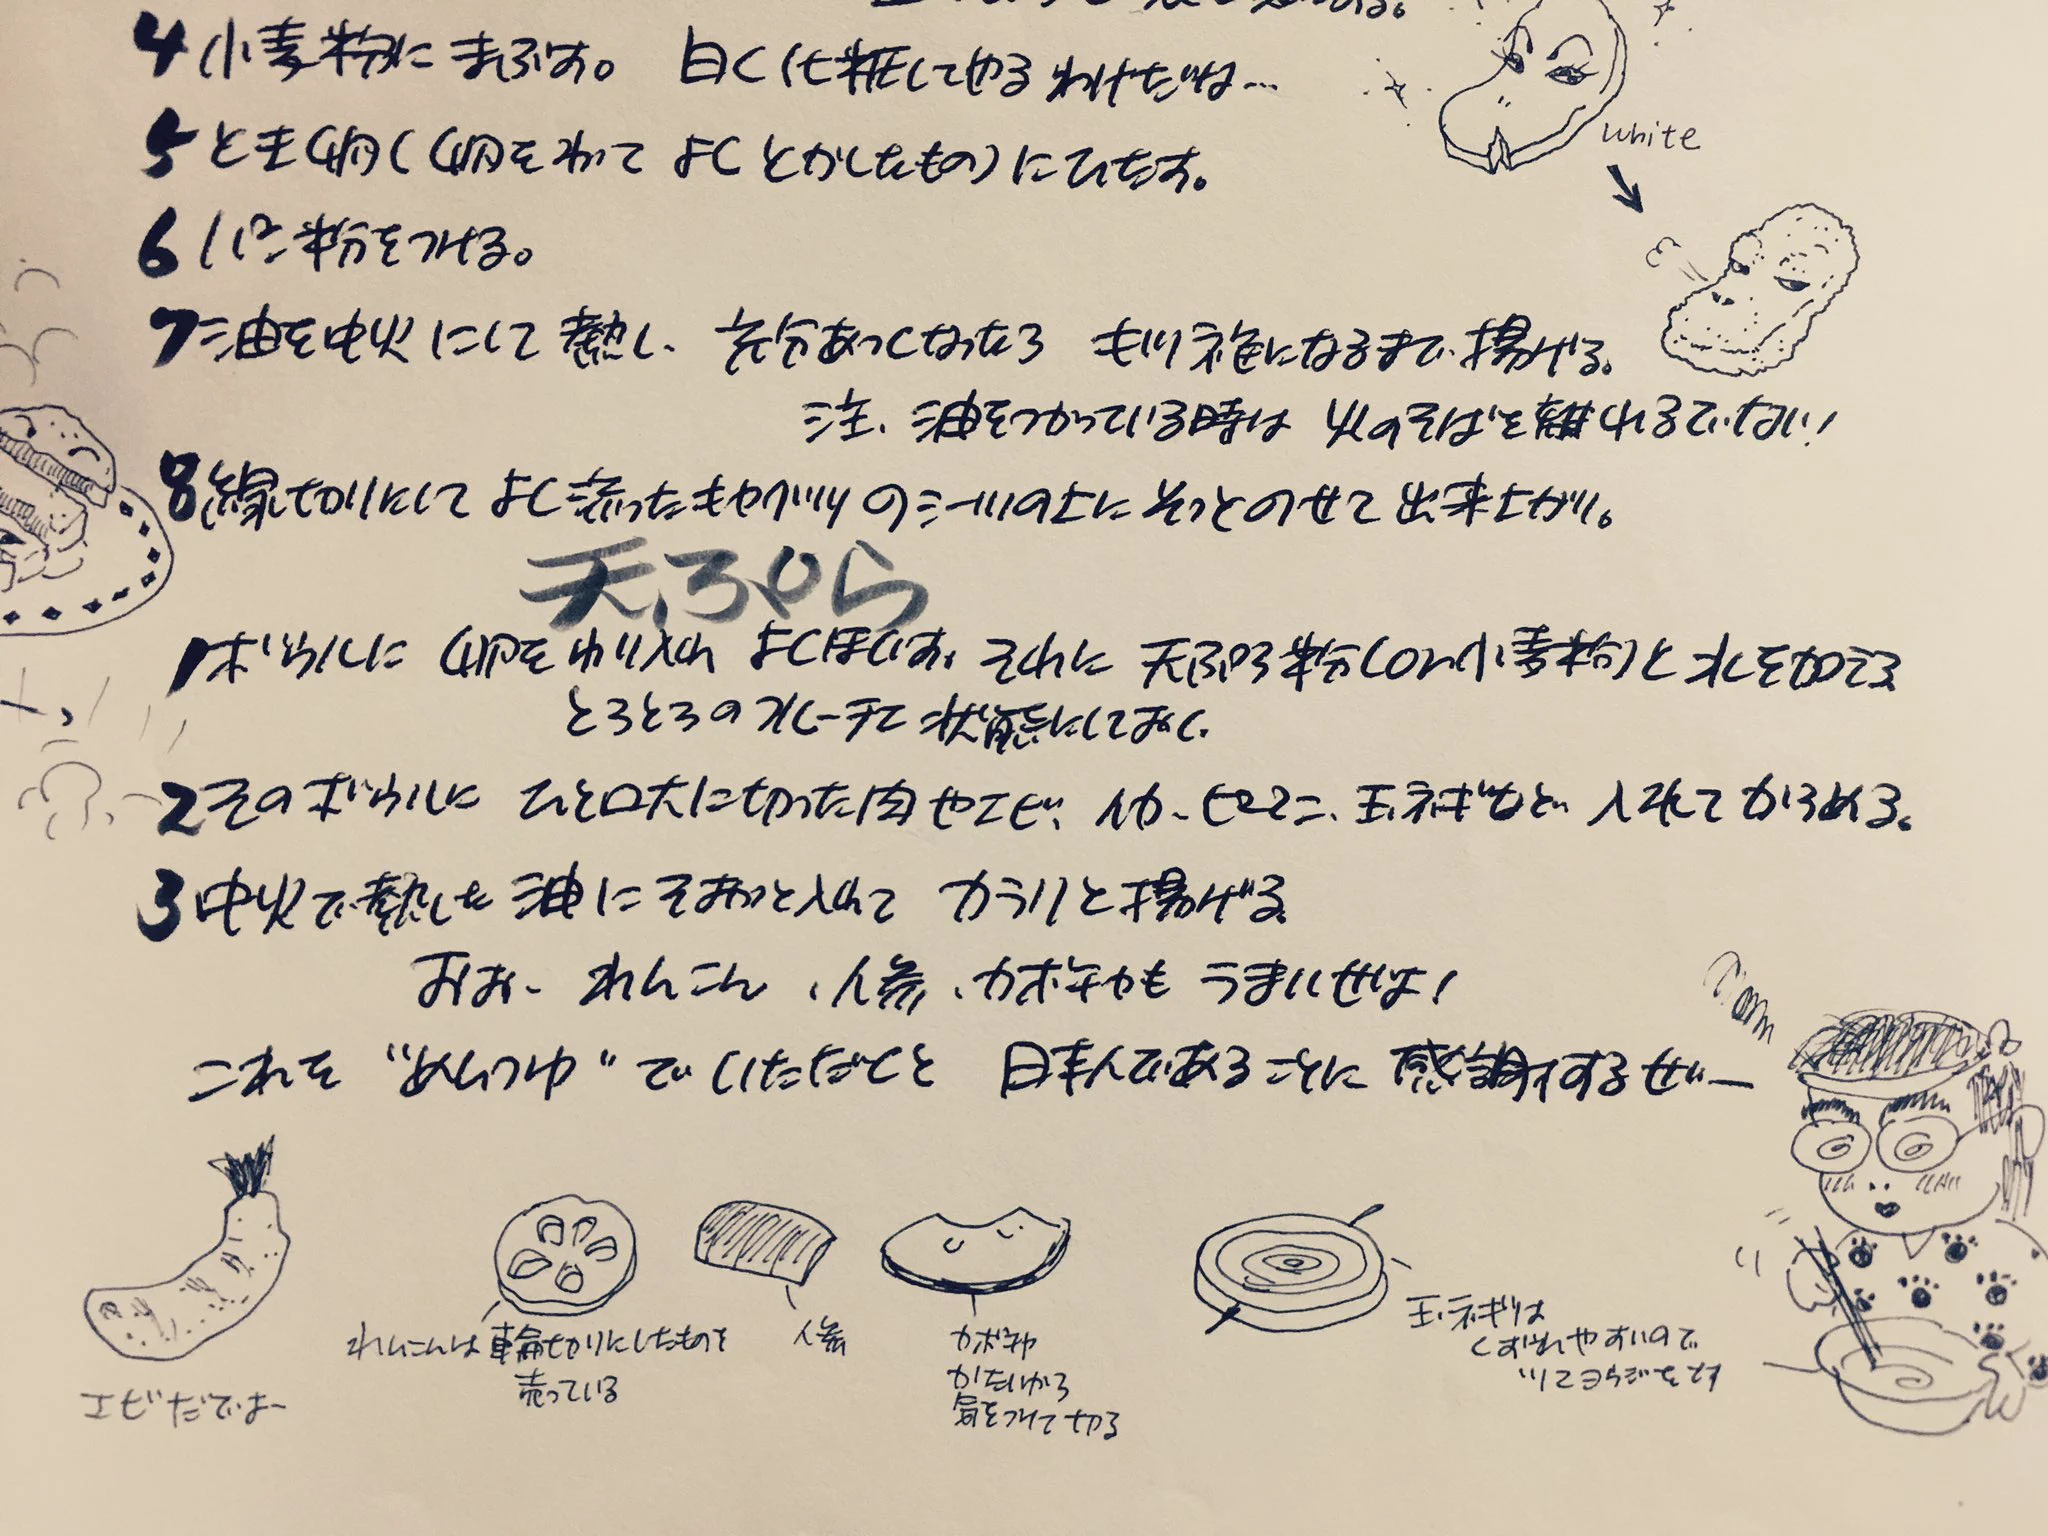 4 小麦粉にまぶす。 白く化粧してやるわけだね…
white
5 とき卵(卵をわってよくとかしたもの)にひたす。
6 パン粉をつける。
7 油を中火にして熱し、充分あつくなったら きつね色になるまで揚げる。
注、油をつかっている時は 火のそばを離れるでない!
8 縁切りにして よく洗ったキャベツの上にそっとのせて出来上がり。
天ぷら
1 ボウルに 卵をわり入れ よくほぐす。それに 天ぷら粉(or小麦粉)と水を加える
とろとろの 状態にしておく。
2 そのボウルに ひと口大に切った肉やエビ、イカ、ピーマン、玉ネギなど 入れてからめる。
3 中火で熱した油にそおっと入れて カラリと揚げる
おお、れんこん、人参、カボチャも うまいぜよ!
これを “めんつゆ” でいただくと 日本人であることに 感謝するぜー
エビだでよー
れんこんは 輪切りにしたものを
売っている
人参
カボチャ
かたいから
気をつけて切る
玉ネギは
くずれやすいので
ツマヨウジをさす